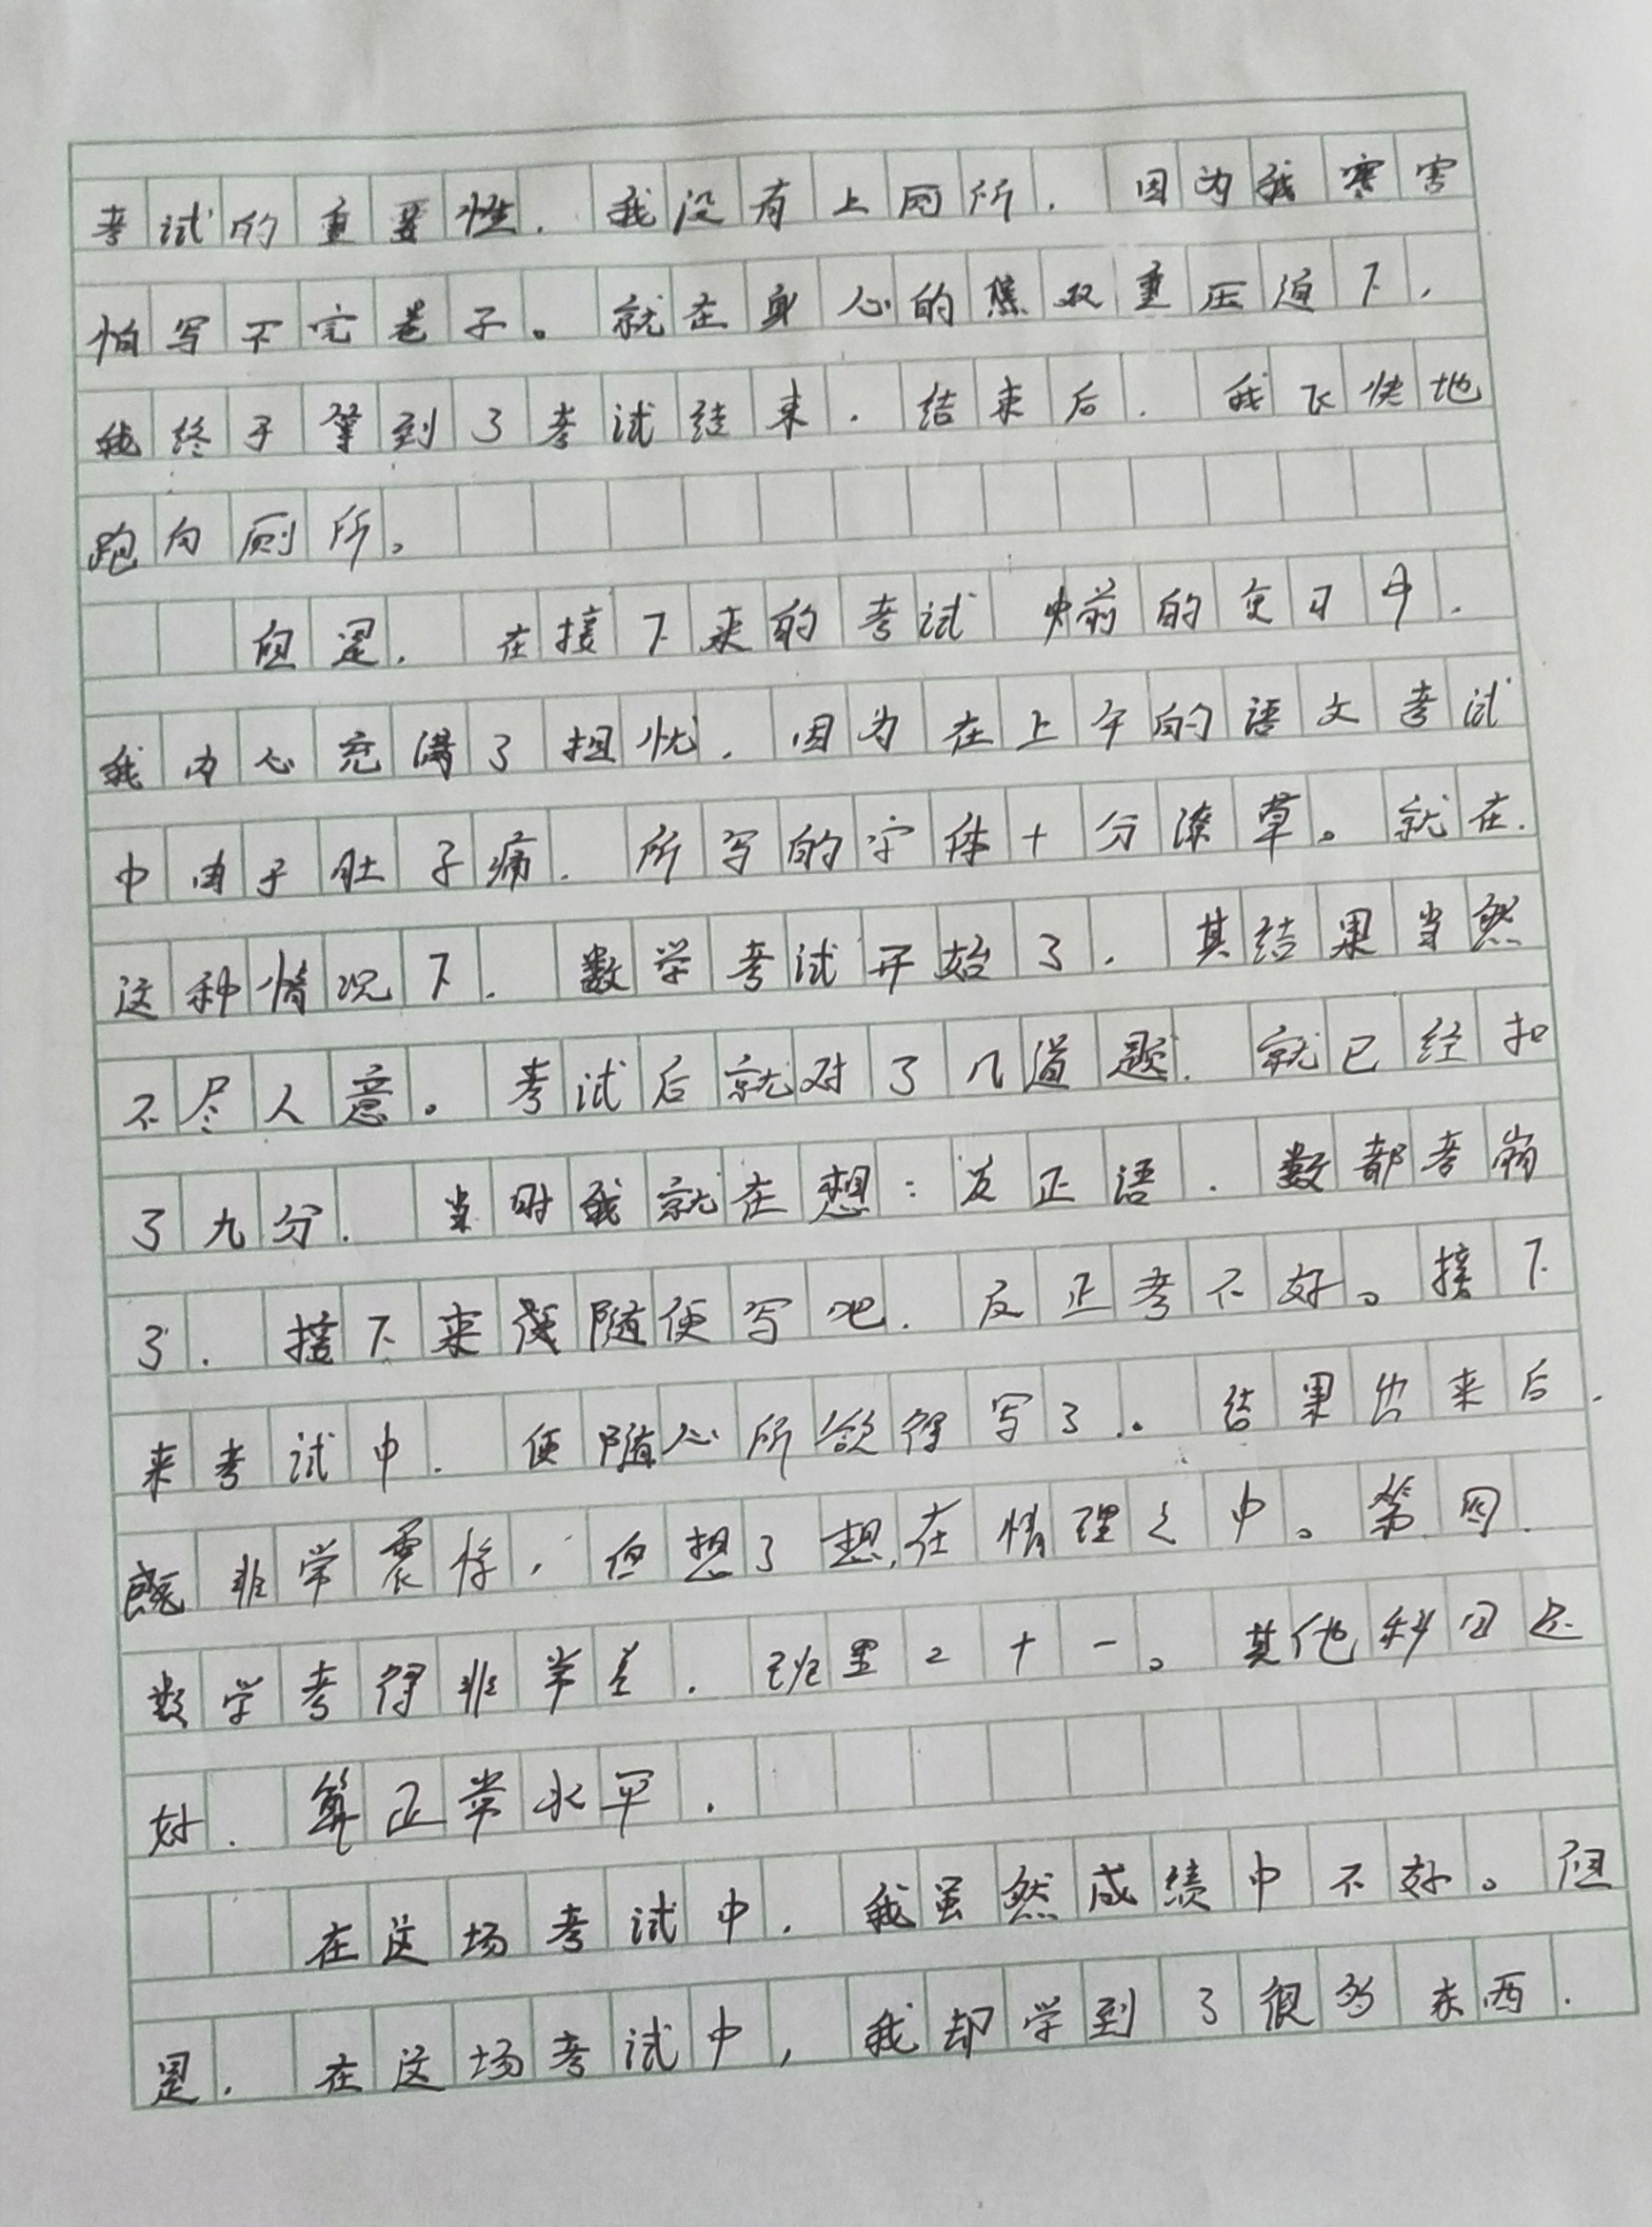 考试的重要性，我没有上网所，因为我害害
怕写不完卷子。就在身心的焦双重压迫下，
我终于等到了考试结束，结束后，我飞快地
跑向厕所。
但是，在接下来的考试 前的复习中，
我内心充满了担忧，因为在上午的语文考试
中由于肚子痛，所写的字体十分潦草。就在
这种情况下，数学考试开始了，其结果当然
不尽人意。考试后就对了几道题，就已经扣
了九分，当时我就在想：反正语、数都考崩
了，接下来便随便写吧，反正考不好。接下
来考试中，便随心所欲得写了。结果出来后，
既非常震惊，但想了想，在情理之中。第四，
数学考得非常差，班里二十一。其他科目还
好，算正常水平，
在这场考试中，我虽然成绩中不好。但
是，在这场考试中，我却学到了很多东西，